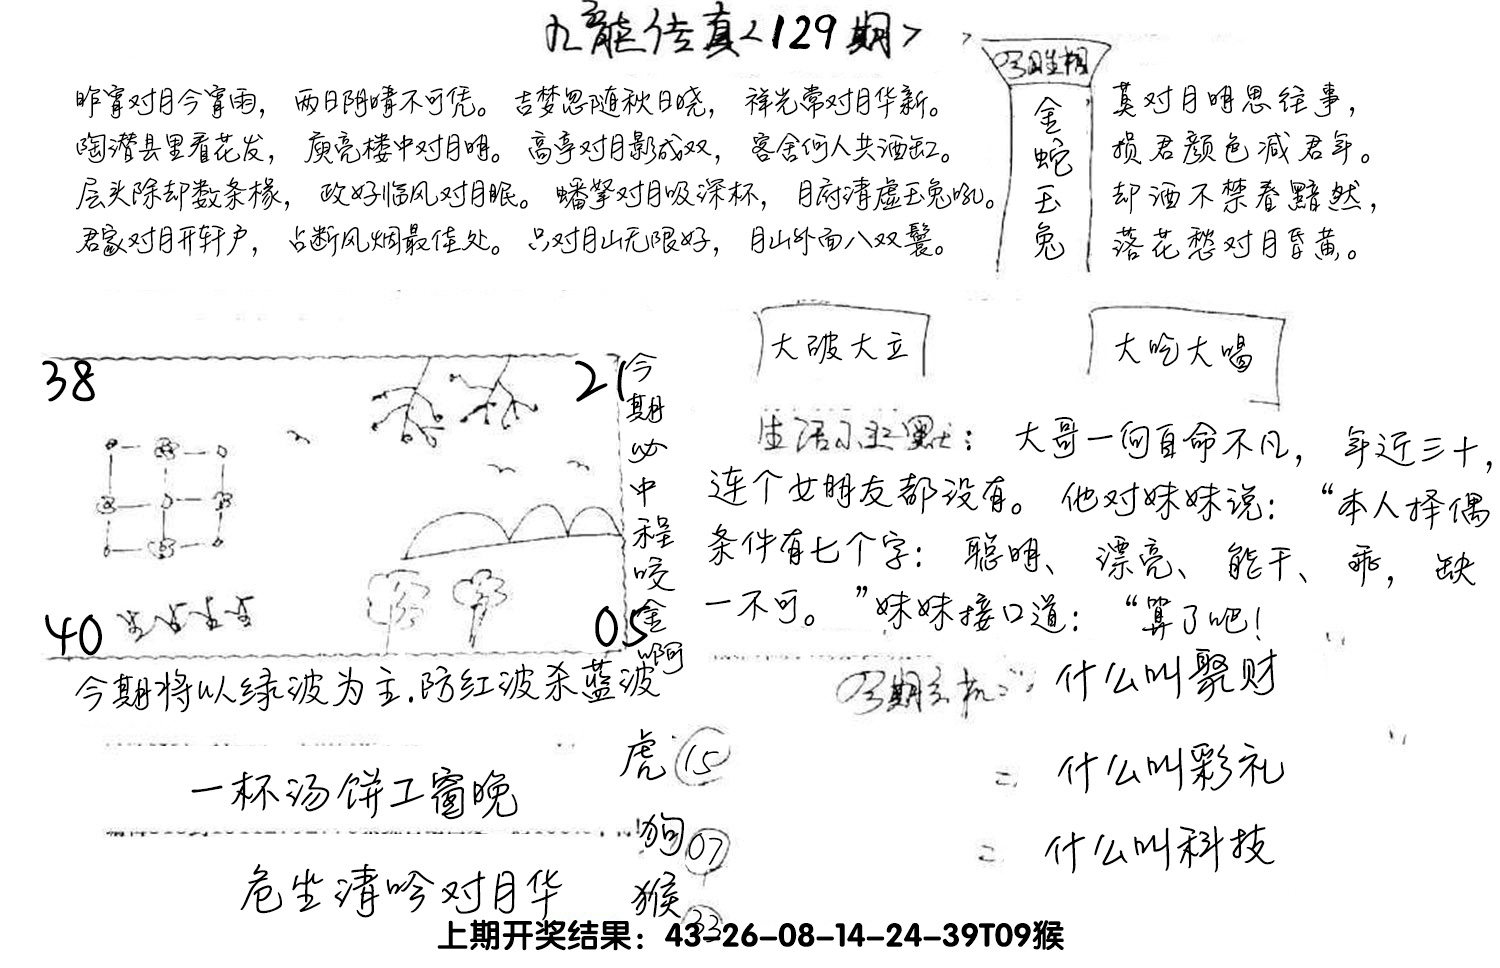 九龙传真<129期>
昨宵对月今宵雨，两日阴晴不可凭。吉梦忽随秋日晓，祥光常对月华新。
陶潜县里看花发，庾亮楼中对月明。高亭对月影成双，客舍何人共酒缸。
层头除却数条椽，政好临风对月眠。蟠拏对月吸深杯，月府清虚玉兔吼。
君家对月开轩户，占断风烟最佳处。只对月山无限好，月山外面八双鬟。
今日生相
金蛇玉兔
莫对月明思往事，
损君颜色减君年。
却酒不禁春黯然，
落花愁对月昏黄。
38
21
40
05
今期必中程咬金啊
今期将以绿波为主.防红波杀蓝波
大破大立
大吃大喝
生活小幽默：大哥一向自命不凡，年近三十，
连个女朋友都没有。他对妹妹说：“本人择偶
条件有七个字：聪明、漂亮、能干、乖，缺
一不可。”妹妹接口道：“算了吧！
今期玄机 什么叫聚财
二 什么叫彩礼
二 什么叫科技
一杯汤饼工窗晚
危坐清吟对月华
虎 15
狗 07
猴 33
上期开奖结果：43-26-08-14-24-39T09猴